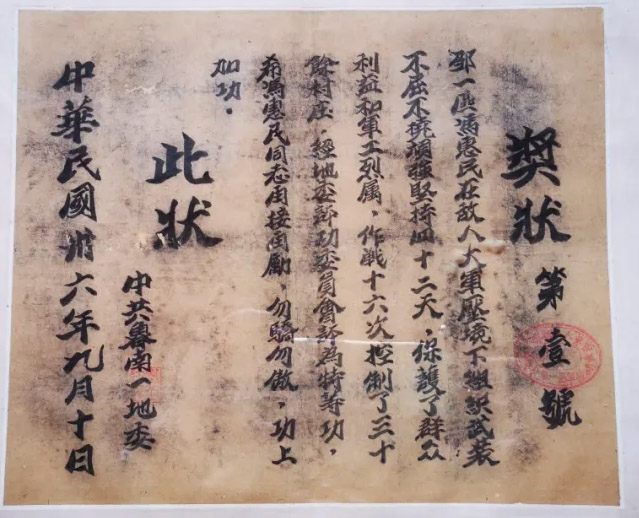 奬狀
第壹號
邳一區馮惠民在敌人大軍壓境下組织武装
不屈不撓頑强堅持四十二天，保護了群众
利益和軍工烈属，作戰十六次控制了三十
餘村庄，經地委評功委員會評为特等功，
希馮惠民同志再接再勵，勿驕勿傲，功上
加功。
此状
中共魯南一地委
中華民國卅六年九月十日